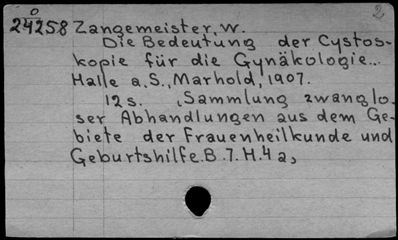 2
0
24258 Zangemeister, W.
Die Bedeutung der Cystos-
kopie für die Gynäkologie...
Halle a.S., Marhold, 1907.
12 s. „Sammlung zwanglo-
ser Abhandlungen aus dem Ge-
biete der Frauenheilkunde und
Geburtshilfe. B. 7. H. 4 a,